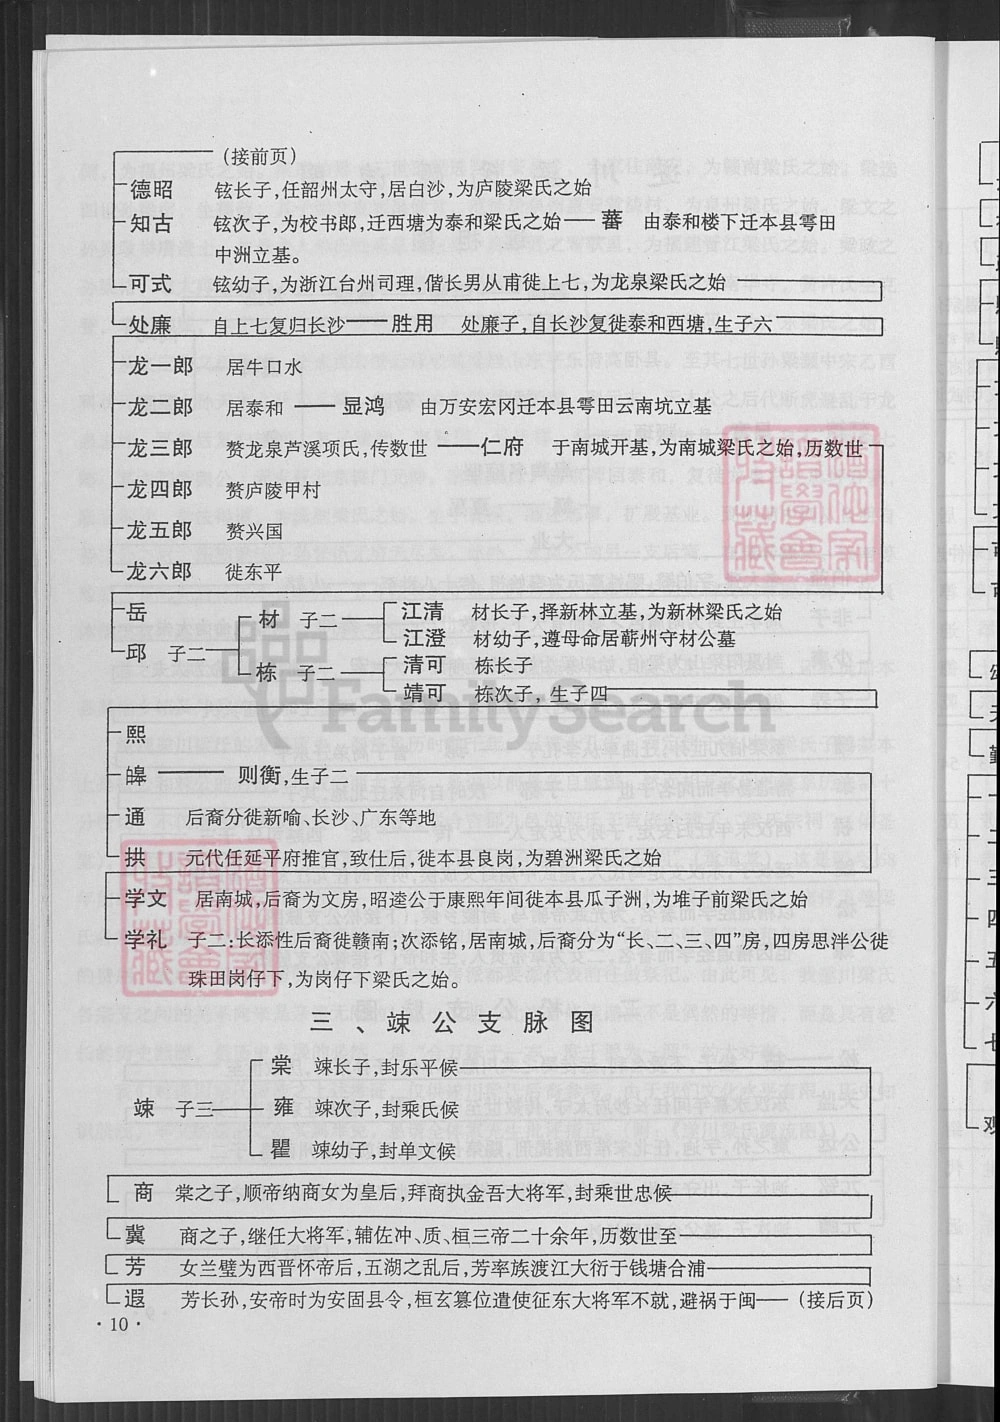 (接前页)
德昭 铉长子,任韶州太守,居白沙,为庐陵梁氏之始
知古 铉次子,为校书郎,迁西塘为泰和梁氏之始 蕃 由泰和楼下迁本县雩田
中洲立基。
可式 铉幼子,为浙江台州司理,偕长男从甫徙上七,为龙泉梁氏之始
处廉 自上七复归长沙 胜用 处廉子,自长沙复徙泰和西塘,生子六
龙一郎 居牛口水
龙二郎 居泰和 显鸿 由万安宏冈迁本县雩田云南坑立基
龙三郎 赘龙泉芦溪项氏,传数世 仁府 于南城开基,为南城梁氏之始,历数世
龙四郎 赘庐陵甲村
龙五郎 赘兴国
龙六郎 徙东平
岳
邱 子二
材 子二
江清 材长子,择新林立基,为新林梁氏之始
江澄 材幼子,遵母命居蕲州守材公墓
栋 子二
清可 栋长子
靖可 栋次子,生子四
熙
皞 则衡,生子二
通 后裔分徙新喻、长沙、广东等地
拱 元代任延平府推官,致仕后,徙本县良岗,为碧洲梁氏之始
学文 居南城,后裔为文房,昭逵公于康熙年间徙本县瓜子洲,为堆子前梁氏之始
学礼 子二:长添性后裔徙赣南;次添铭,居南城,后裔分为“长、二、三、四”房,四房思泮公徙
珠田岗仔下,为岗仔下梁氏之始。
三、竦公支脉图
竦 子三
棠 竦长子,封乐平候
雍 竦次子,封乘氏候
瞿 竦幼子,封单文候
商 棠之子,顺帝纳商女为皇后,拜商执金吾大将军,封乘世忠候
冀 商之子,继任大将军,辅佐冲、质、桓三帝二十余年,历数世至
芳 女兰璧为西晋怀帝后,五湖之乱后,芳率族渡江大衍于钱塘合浦
遐 芳长孙,安帝时为安固县令,桓玄篡位遣使征东大将军不就,避祸于闽 (接后页)
·10·
FamilySearch